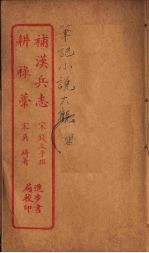 補漢兵志
宋錢文子撰
耕祿藁
宋吳崎著
進步書局校印
筆記小說大觀